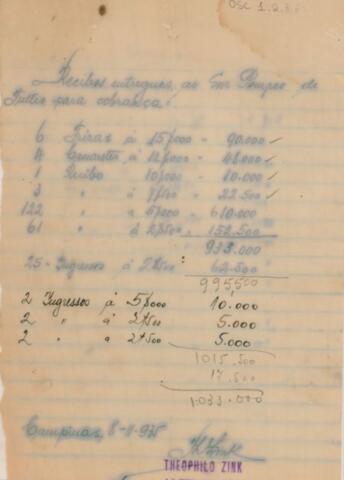 OSC 1.2.8.8
Recibos entregues ao Snr Pompeo de
Tullio para cobrança:
6 Frisas á 15$000 - 90.000
4 Camarotes á 12$000 - 48.000
1 Recibo 10$000 - 10.000
3 " á 7$500 - 22.500
122 " á 5$000 - 610.000
61 " á 2$500 - 152.500
933.000
25 - Ingressos á 2$500: 62.500
995,500
2 Ingressos á 5$000 10.000
2 " a 2$500 5.000
2 " a 2$500 5.000
1015.500
17.500
1.033.000
Campinas, 8-11-935
THEOPHILO ZINK